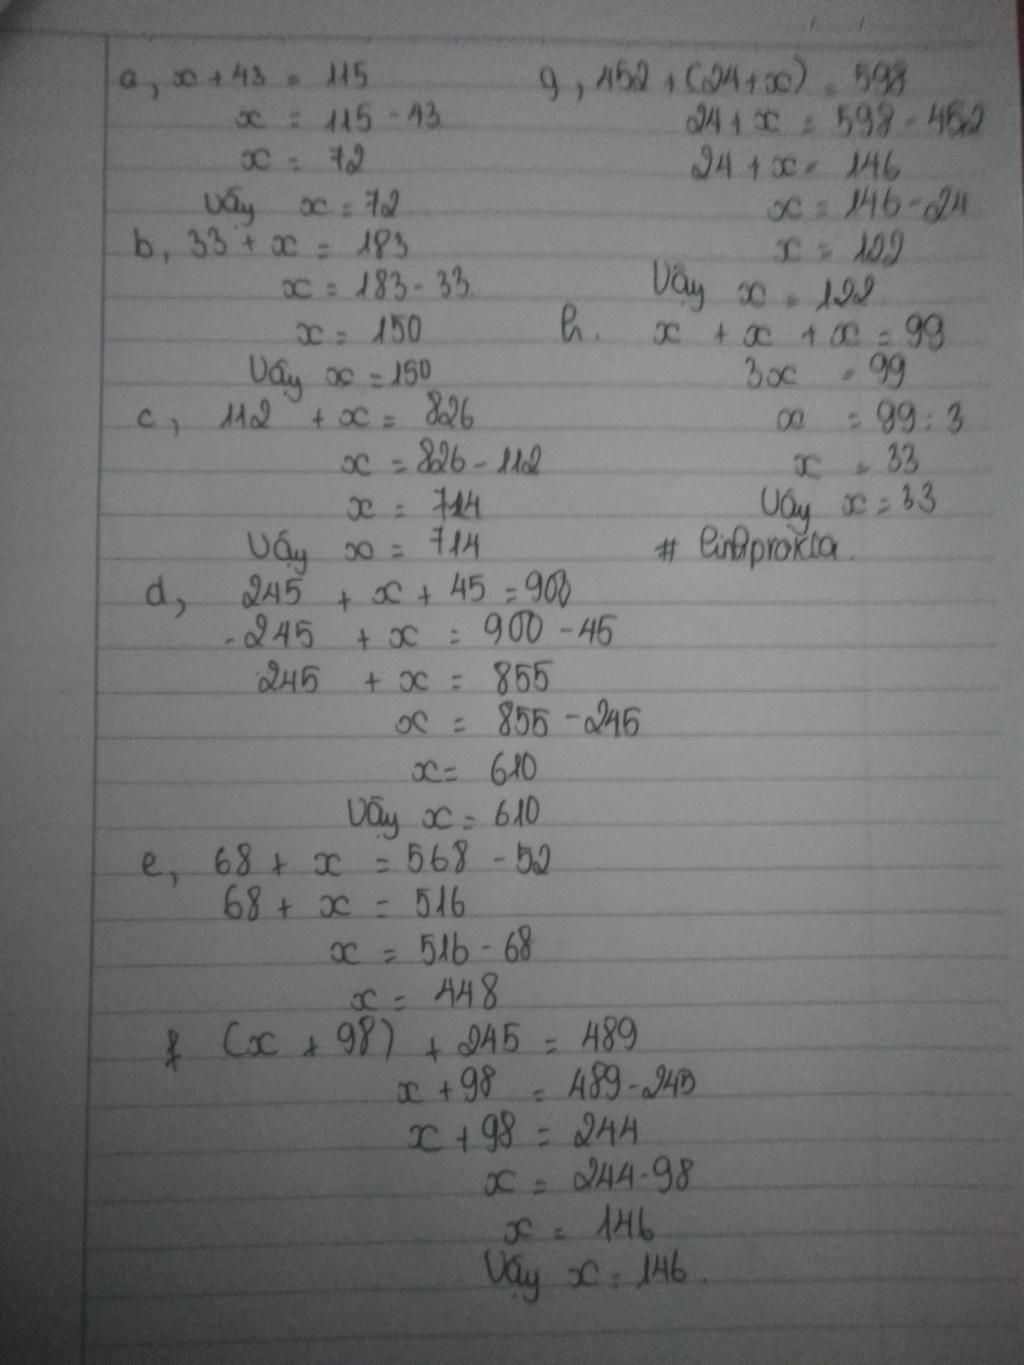 a, x + 43 = 115
x = 115 - 43
x = 72
Vậy x = 72
b, 33 + x = 183
x = 183 - 33
x = 150
Vậy x = 150
c, 112 + x = 826
x = 826 - 112
x = 714
Vậy x = 714
d, 245 + x + 45 = 900
245 + x = 900 - 45
245 + x = 855
x = 855 - 245
x = 610
Vậy x = 610
e, 68 + x = 568 - 52
68 + x = 516
x = 516 - 68
x = 448
f (x + 98) + 245 = 489
x + 98 = 489 - 245
x + 98 = 244
x = 244 - 98
x = 146
Vậy x = 146.
g, 452 + (24 + x) = 598
24 + x = 598 - 452
24 + x = 146
x = 146 - 24
x = 122
Vậy x = 122
h. x + x + x = 99
3x = 99
x = 99 : 3
x = 33
Vậy x = 33
#